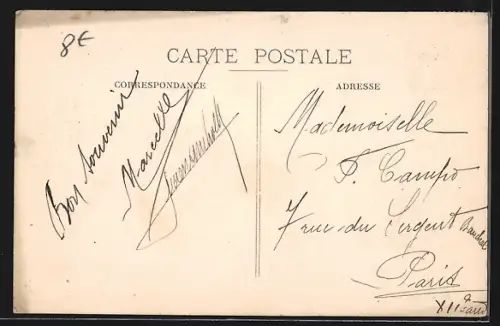 8€
CARTE POSTALE
CORRESPONDANCE
ADRESSE
Bon souvenir
Marcelle
Mademoiselle
F. Campo
7 rue du Sergent Bauchat
Paris
XIIe arr